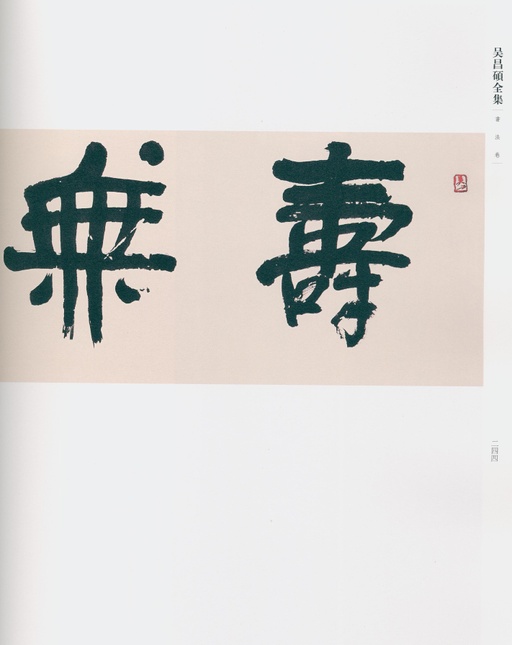 壽無
吴昌碩全集
書法卷
二四四